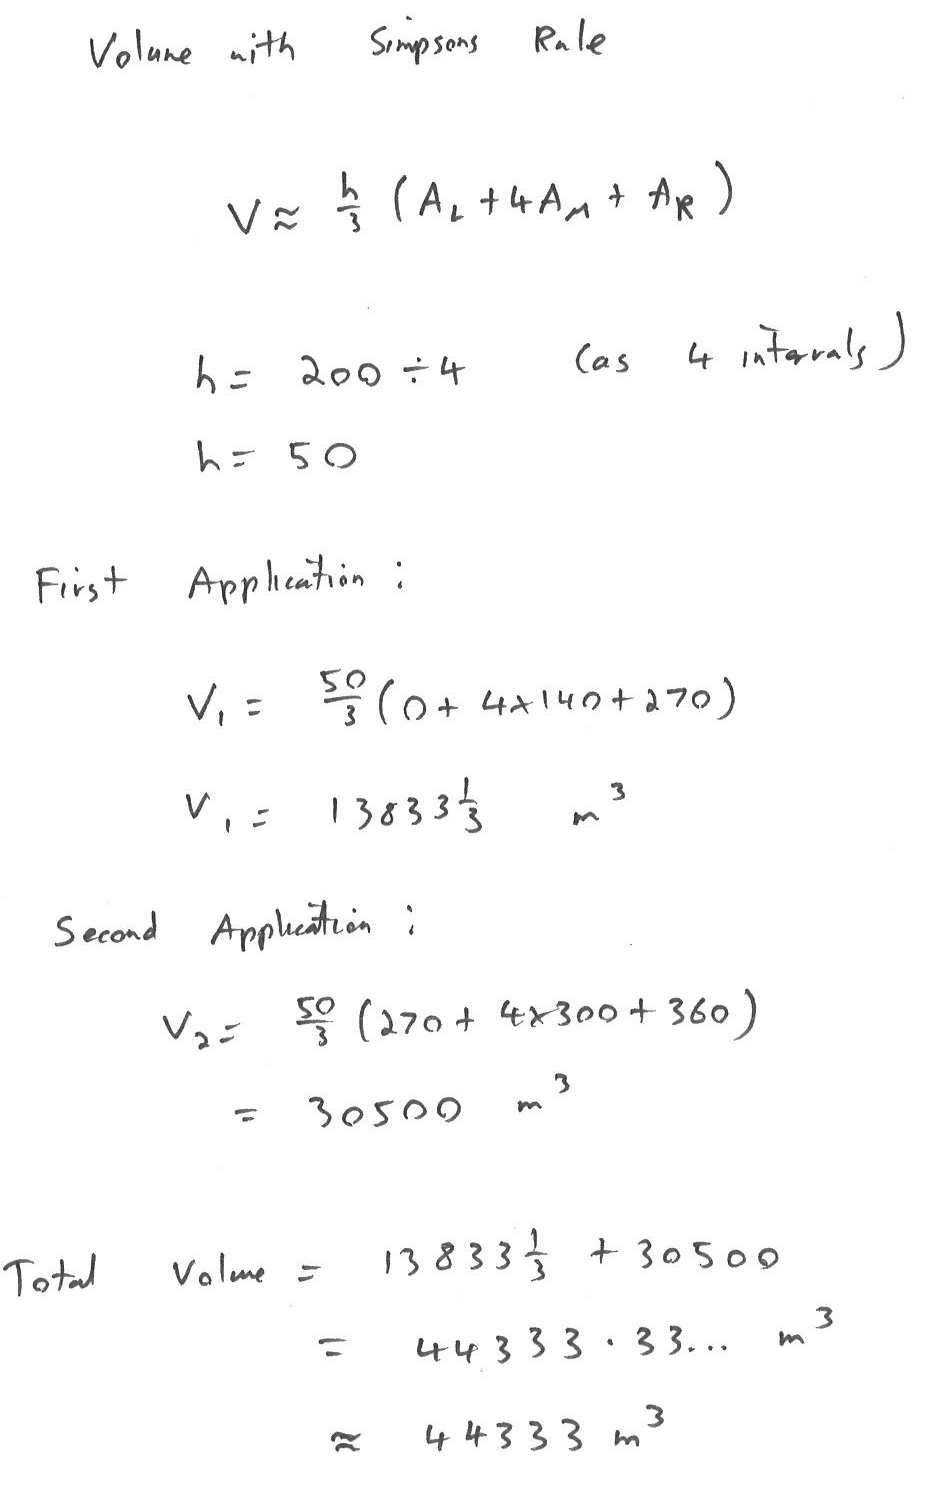 Volume with Simpsons Rule
V ≈ h/3 (A_L + 4A_M + A_R)
h = 200 ÷ 4 (as 4 intervals)
h = 50
First Application :
V₁ = 50/3 (0 + 4×140 + 270)
V₁ = 13833 1/3 m³
Second Application :
V₂ = 50/3 (270 + 4×300 + 360)
= 30500 m³
Total Volume = 13833 1/3 + 30500
= 44333.33... m³
≈ 44333 m³